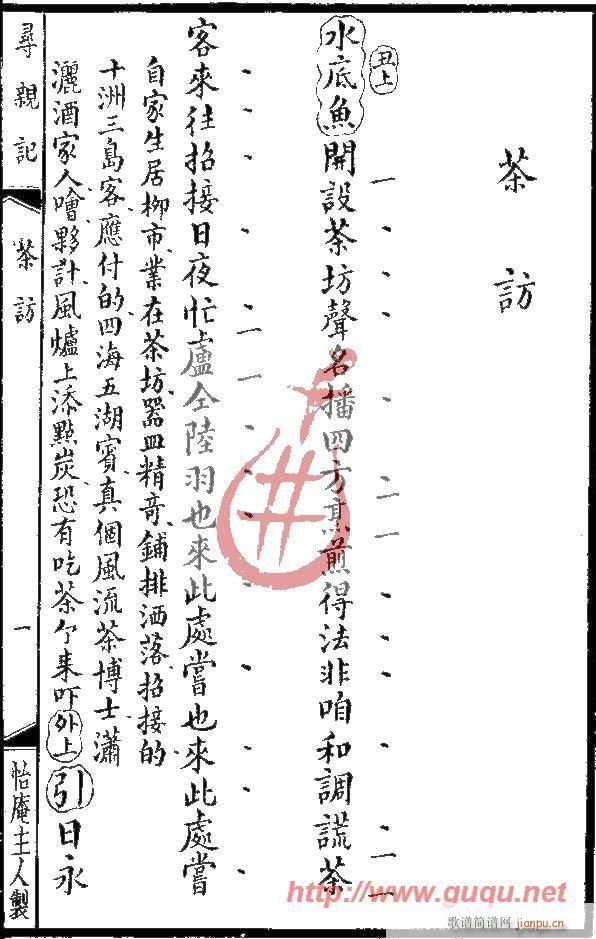 茶訪
丑上
水底魚開設茶坊聲名播四方熏煎得法非咱和調謊茶
客來往招接日夜忙盧仝陸羽也來此處嘗也來此處嘗
自家生居柳市業在茶坊器皿精奇鋪排洒落招接的
十洲三島客應付的四海五湖賓真個風流茶博士瀟
灑酒家人噲夥計風爐上添點炭恐有吃茶个來吓外上引日永
尋親記
茶訪
一
怡庵主人製
http://www.guqu.net
歌谱简谱网
jianpu.cn